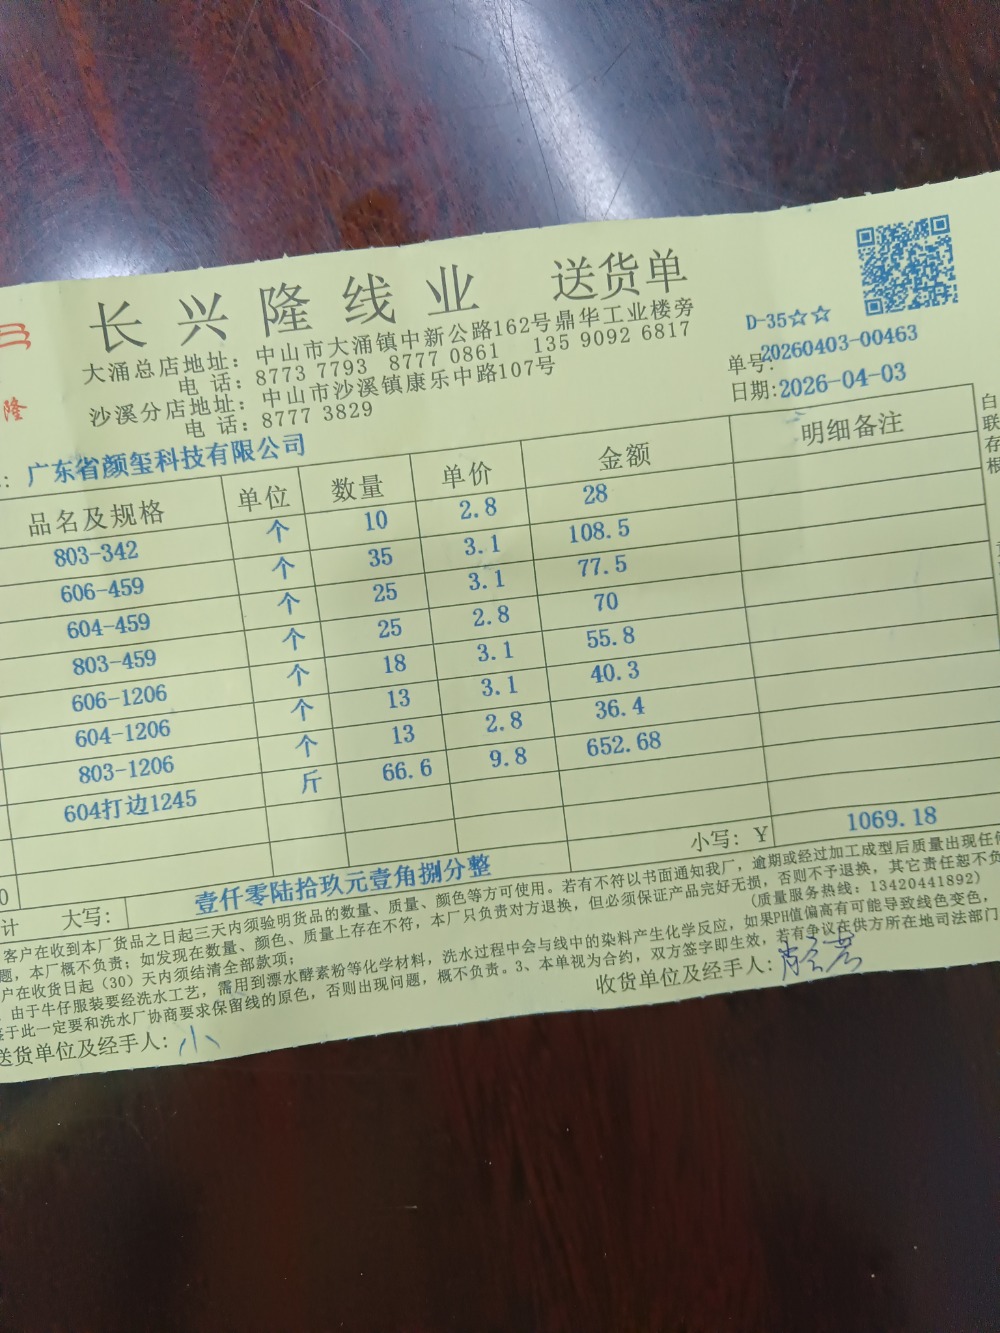 长兴隆线业 送货单
隆
大涌总店地址：中山市大涌镇中新公路162号鼎华工业楼旁
电 话：8773 7793 8777 0861 135 9092 6817
沙溪分店地址：中山市沙溪镇康乐中路107号
电 话：8777 3829
D-35☆☆
单号:20260403-00463
日期:2026-04-03
：广东省颜玺科技有限公司
品名及规格 单位 数量 单价 金额 明细备注
803-342 个 10 2.8 28
606-459 个 35 3.1 108.5
604-459 个 25 3.1 77.5
803-459 个 25 2.8 70
606-1206 个 18 3.1 55.8
604-1206 个 13 3.1 40.3
803-1206 个 13 2.8 36.4
604打边1245 斤 66.6 9.8 652.68
0
小写：￥ 1069.18
计 大写： 壹仟零陆拾玖元壹角捌分整
客户在收到本厂货品之日起三天内须验明货品的数量、质量、颜色等方可使用。若有不符以书面通知我厂，逾期或经过加工成型后质量出现任何
题，本厂概不负责；如发现在数量、颜色、质量上存在不符，本厂只负责对方退换，但必须保证产品完好无损，否则不予退换，其它责任恕不负
户在收货日起（30）天内须结清全部款项； （质量服务热线：13420441892）
由于牛仔服装要经洗水工艺，需用到漂水酵素粉等化学材料，洗水过程中会与线中的染料产生化学反应，如果PH值偏高有可能导致线色变色，
鉴于此一定要和洗水厂协商要求保留线的原色，否则出现问题，概不负责。3、本单视为合约，双方签字即生效，若有争议在供方所在地司法部门
送货单位及经手人：小
收货单位及经手人：
白
联
存
根